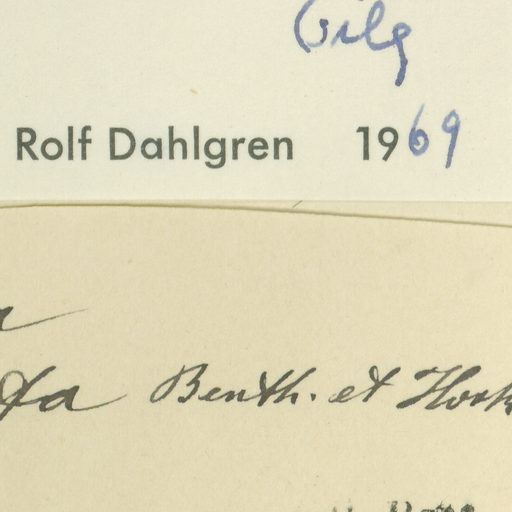 Gilg
Rolf Dahlgren 1969
Benth. et Hook